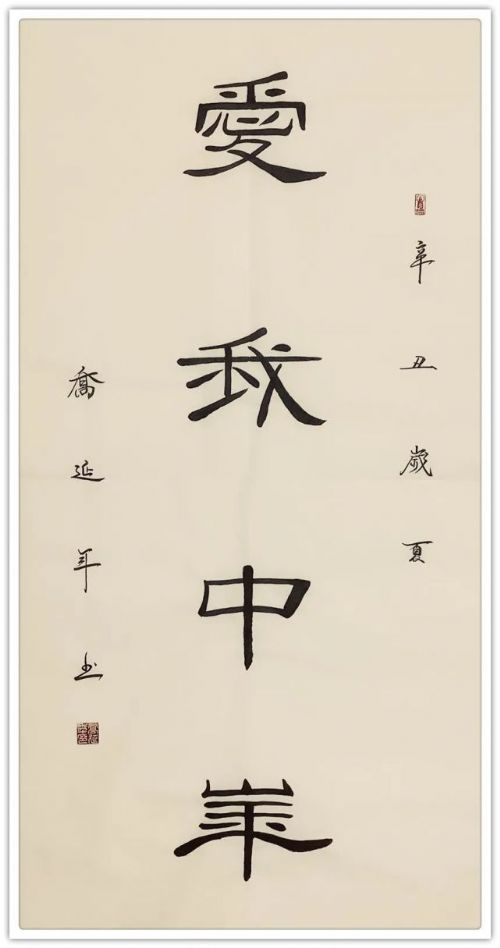 辛丑歲夏
愛我中華
喬延年书